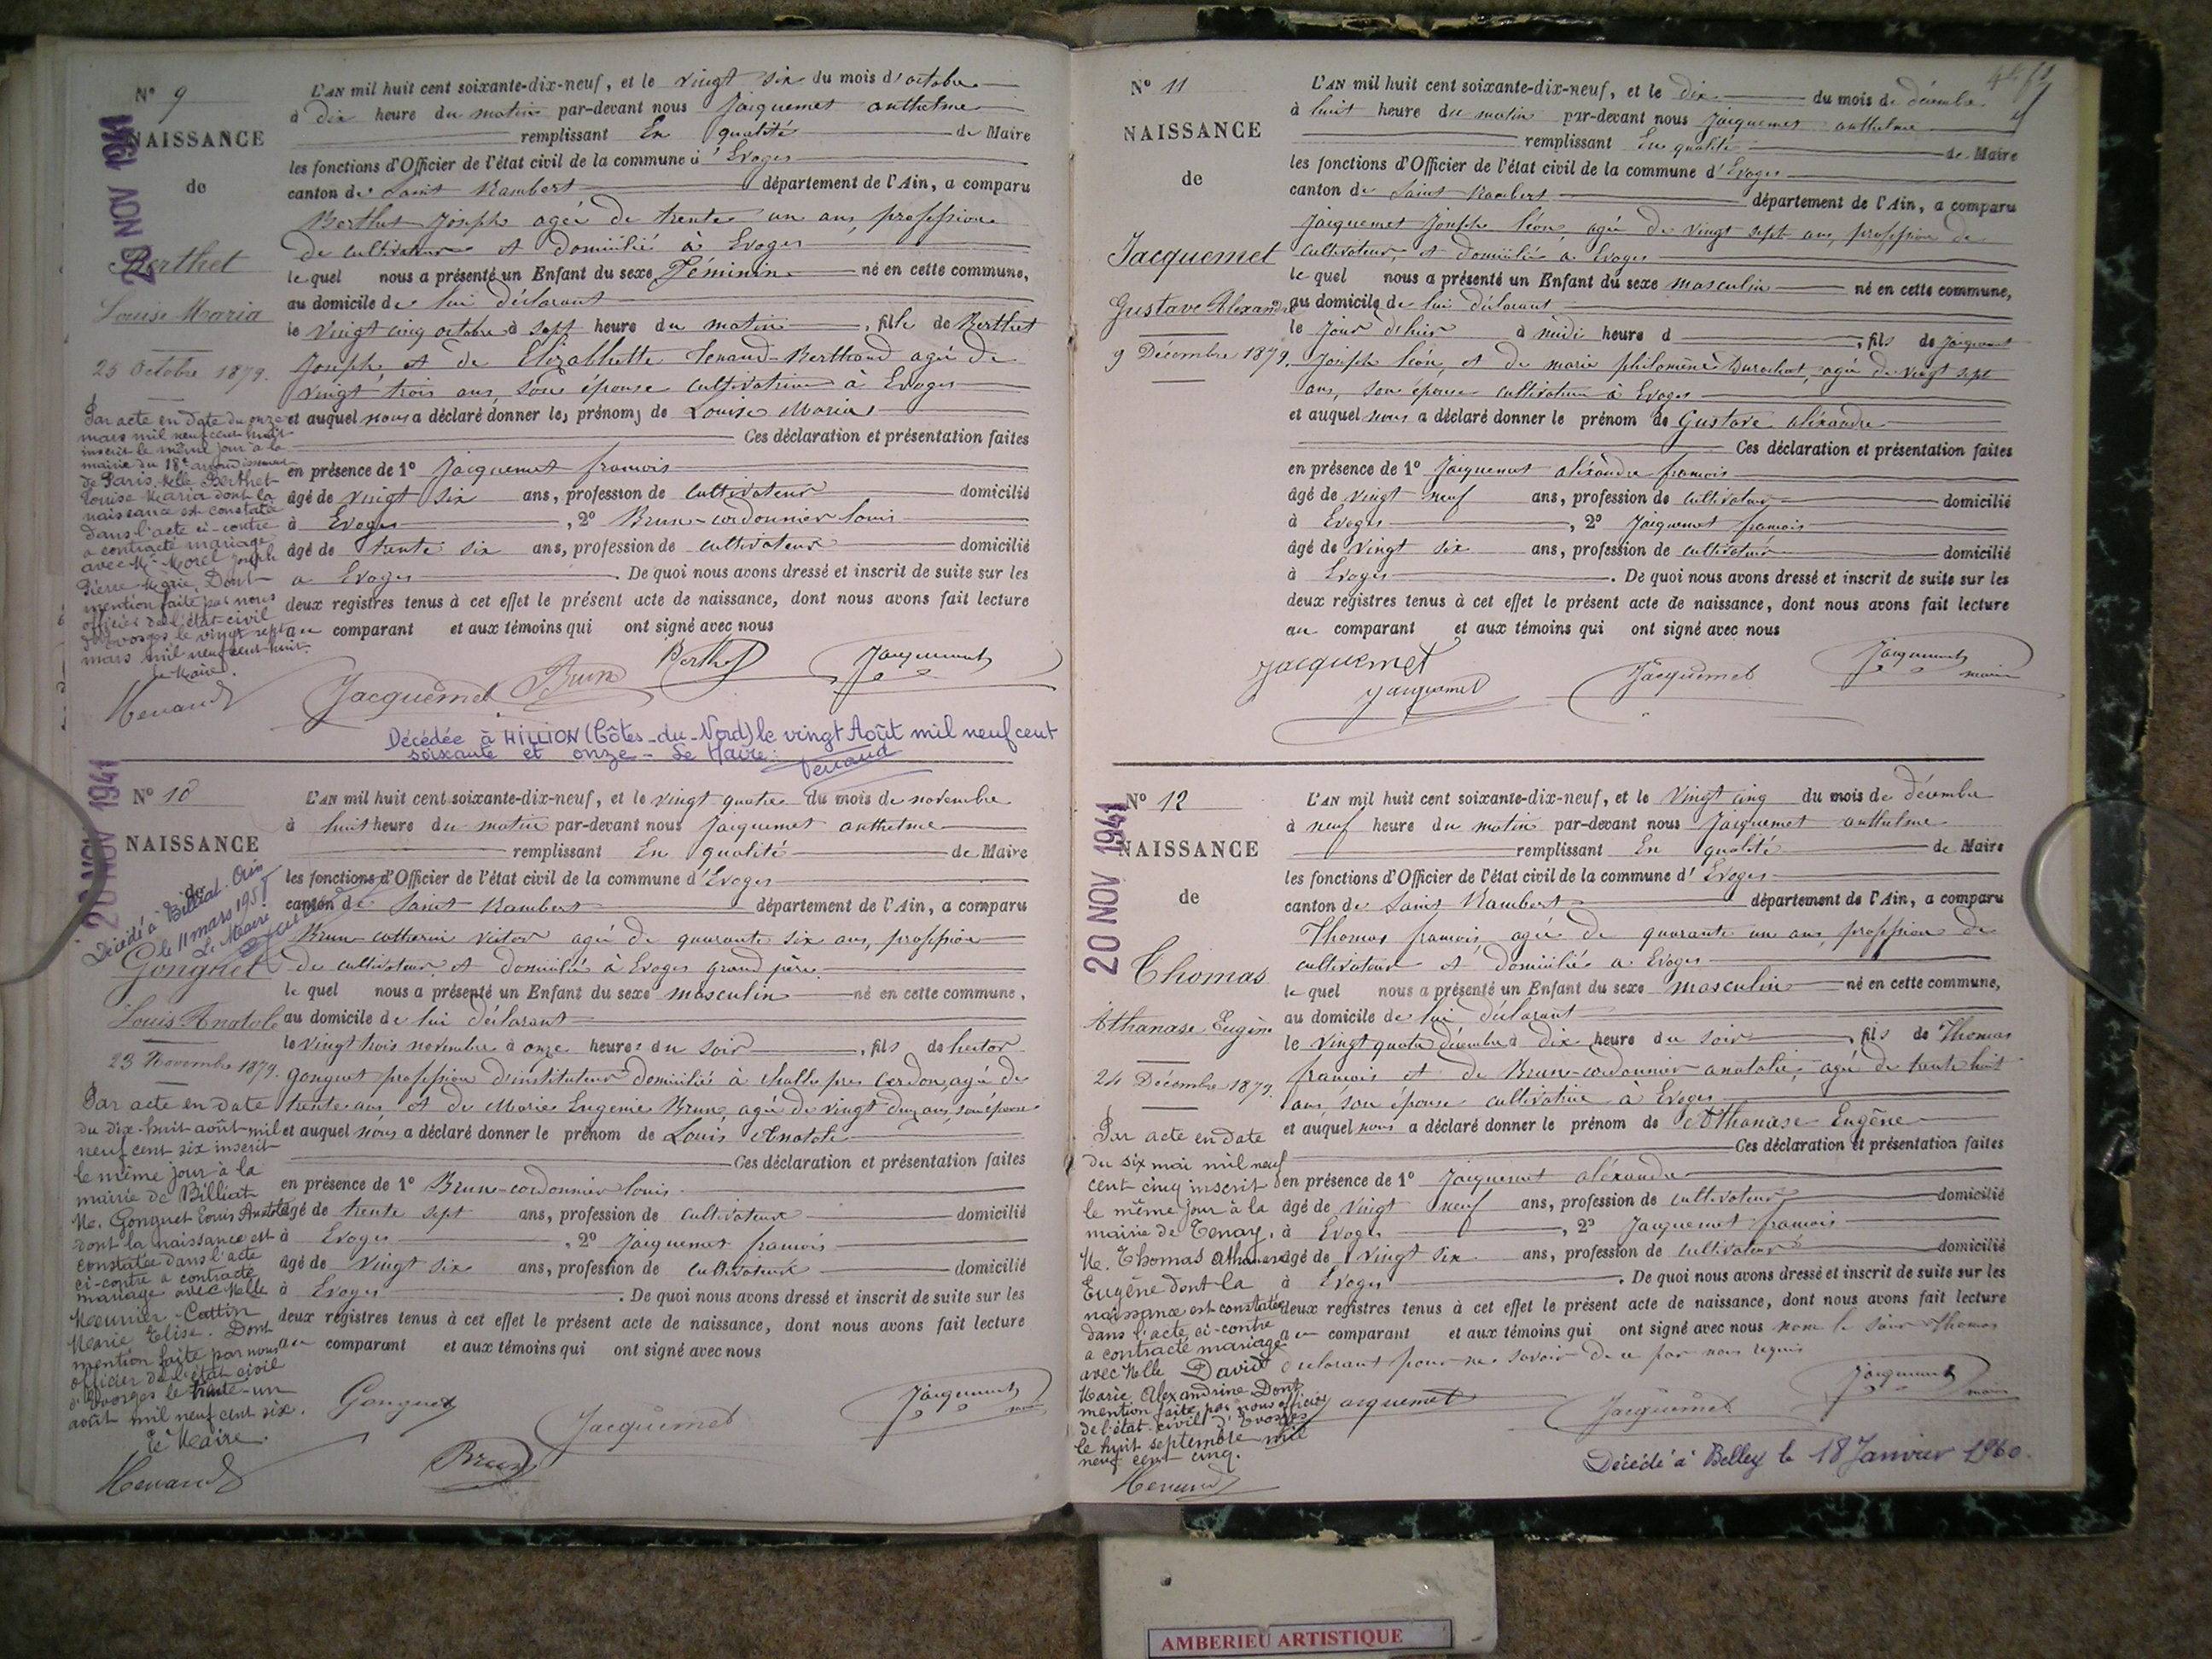 N° 9
NAISSANCE
de
Berthet
Louise Maria
25 Octobre 1879.
20 NOV 1941
Par acte en date du onze
mars mil neuf cent huit
inscrit le même jour à la
mairie du 18e arrondissement
de Paris, Melle Berthet
Louise Maria dont la
naissance est constatée
dans l'acte ci-contre
a contracté mariage
avec Mr Morel Joseph
Pierre Marie. Dont
mention faite par nous
officier de l'état-civil
d'Evosges le vingt sept
mars mil neuf cent huit.
Le Maire.
L'AN mil huit cent soixante-dix-neuf, et le vingt six du mois d'octobre
à dix heure du matin par-devant nous Jacquemet anthelme
remplissant En qualité de Maire
les fonctions d'Officier de l'état civil de la commune d'Evoges
canton de Saint Rambert département de l'Ain, a comparu
Berthet Joseph agée de trente un ans, profession
de cultivateur et domicilié à Evoges
le quel nous a présenté un Enfant du sexe Féminin né en cette commune,
au domicile de lui déclarant
le vingt cinq octobre à sept heure du matin, fille de Berthet
Joseph et de Elizabhette Tenand-Berthaud agée de
vingt trois ans, son épouse cultivatrice à Evoges
et auquel nous a déclaré donner les prénoms de Louise Maria
Ces déclaration et présentation faites
en présence de 1° Jacquemet francois
âgé de vingt six ans, profession de cultivateur domicilié
à Evoges, 2° Brun-cordonnier louis
âgé de trente six ans, profession de cultivateur domicilié
a Evoges. De quoi nous avons dressé et inscrit de suite sur les
deux registres tenus à cet effet le présent acte de naissance, dont nous avons fait lecture
au comparant et aux témoins qui ont signé avec nous
Jacquemet Brun Berthet Jacquemet
Décédée à HILLION (Côtes-du-Nord) le vingt Août mil neuf cent
soixante et onze - Le Maire:
N° 10
NAISSANCE
de
Décédé à Billiat
le 11 mars 195
Le Maire
Gonguet
Louis Anatole
23 Novembre 1879.
20 NOV 1941
Par acte en date
du dix-huit août mil
neuf cent six inscrit
le même jour à la
mairie de Billiat
M. Gonguet Louis Anatole
dont la naissance est
constatée dans l'acte
ci-contre a contracté
mariage avec Melle
Meunier-Cattin
Marie Elise. Dont
mention faite par nous
officier de l'état civil
d'Evosges le trente-un
août mil neuf cent six.
Le Maire.
L'AN mil huit cent soixante-dix-neuf, et le vingt quatre du mois de novembre
à huit heure du matin par-devant nous Jacquemet anthelme
remplissant En qualité de Maire
les fonctions d'Officier de l'état civil de la commune d'Evoges
canton de Saint Rambert département de l'Ain, a comparu
Brun-cotherin victor agée de quarante six ans, profession
de cultivateur et domicilié à Evoges grand père
le quel nous a présenté un Enfant du sexe masculin né en cette commune,
au domicile de lui déclarant
le vingt trois novembre à onze heures du soir, fils de hector
gonguet profession d'instituteur domicilié à challes pres Cerdon, agée de
trente ans, et de Marie Eugenie Brun, agée de vingt deux ans, son épouse
et auquel nous a déclaré donner le prénom de Louis Anatole
Ces déclaration et présentation faites
en présence de 1° Brun-cordonnier louis
âgé de trente sept ans, profession de cultivateur domicilié
à Evoges, 2° Jacquemet francois
âgé de vingt six ans, profession de cultivateur domicilié
à Evoges. De quoi nous avons dressé et inscrit de suite sur les
deux registres tenus à cet effet le présent acte de naissance, dont nous avons fait lecture
au comparant et aux témoins qui ont signé avec nous
Gonguet Jacquemet Jacquemet
Brun
N° 11
NAISSANCE
de
Jacquemet
Gustave Alexandre
9 Décembre 1879.
L'AN mil huit cent soixante-dix-neuf, et le dix du mois de décembre
à huit heure du matin par-devant nous Jacquemet anthelme
remplissant En qualité de Maire
les fonctions d'Officier de l'état civil de la commune d'Evoges
canton de Saint Rambert département de l'Ain, a comparu
Jacquemet Joseph léon, agée de vingt sept ans, profession de
cultivateur, et domicilié a Evoges
le quel nous a présenté un Enfant du sexe masculin né en cette commune,
au domicile de lui déclarant
le Jour d'hier à midi heure d, fils de Jacquemet
Joseph léon, et de marie philomène Durochat, agée de vingt sept
ans, son épouse cultivatrice à Evoges
et auquel nous a déclaré donner le prénom de Gustave aléxandre
Ces déclaration et présentation faites
en présence de 1° Jacquemet aléxandre francois
âgé de vingt neuf ans, profession de cultivateur domicilié
à Evoges, 2° Jacquemet francois
âgé de vingt six ans, profession de cultivateur domicilié
à Evoges. De quoi nous avons dressé et inscrit de suite sur les
deux registres tenus à cet effet le présent acte de naissance, dont nous avons fait lecture
au comparant et aux témoins qui ont signé avec nous
Jacquemet Jacquemet Jacquemet
Jacquemet maire
N° 12
NAISSANCE
de
Thomas
Athanase Eugène
24 Décembre 1879.
20 NOV 1941
Par acte en date
du six mai mil neuf
cent cinq inscrit
le même jour à la
mairie de Tenay,
M. Thomas Athanase
Eugène dont la
naissance est constatée
dans l'acte ci-contre
a contracté mariage
avec Melle David
Marie Alexandrine. Dont
mention faite par nous officier
de l'état civil d'Evosges
le huit septembre mil
neuf cent cinq.
L'AN mil huit cent soixante-dix-neuf, et le vingt cinq du mois de décembre
à neuf heure du matin par-devant nous Jacquemet anthelme
remplissant En qualité de Maire
les fonctions d'Officier de l'état civil de la commune d'Evoges
canton de Saint Rambert département de l'Ain, a comparu
Thomas francois, agée de quarante un ans, profession de
cultivateur et domicilié a Evoges
le quel nous a présenté un Enfant du sexe masculin né en cette commune,
au domicile de lui déclarant
le vingt quatre décembre à dix heure du soir, fils de Thomas
francois et de Brun-cordonnier anatalie, agée de trente huit
ans, son épouse cultivatrice à Evoges
et auquel nous a déclaré donner le prénom de Athanase Eugène
Ces déclaration et présentation faites
en présence de 1° Jacquemet aléxandre
âgé de vingt neuf ans, profession de cultivateur domicilié
à Evoges, 2° Jacquemet francois
âgé de vingt six ans, profession de cultivateur domicilié
à Evoges. De quoi nous avons dressé et inscrit de suite sur les
deux registres tenus à cet effet le présent acte de naissance, dont nous avons fait lecture
au comparant et aux témoins qui ont signé avec nous non le sieur Thomas
déclarant pour ne savoir de ce par nous requis
Jacquemet Jacquemet Jacquemet maire
Décédé à Belley le 18 Janvier 1960.
AMBERIEU ARTISTIQUE